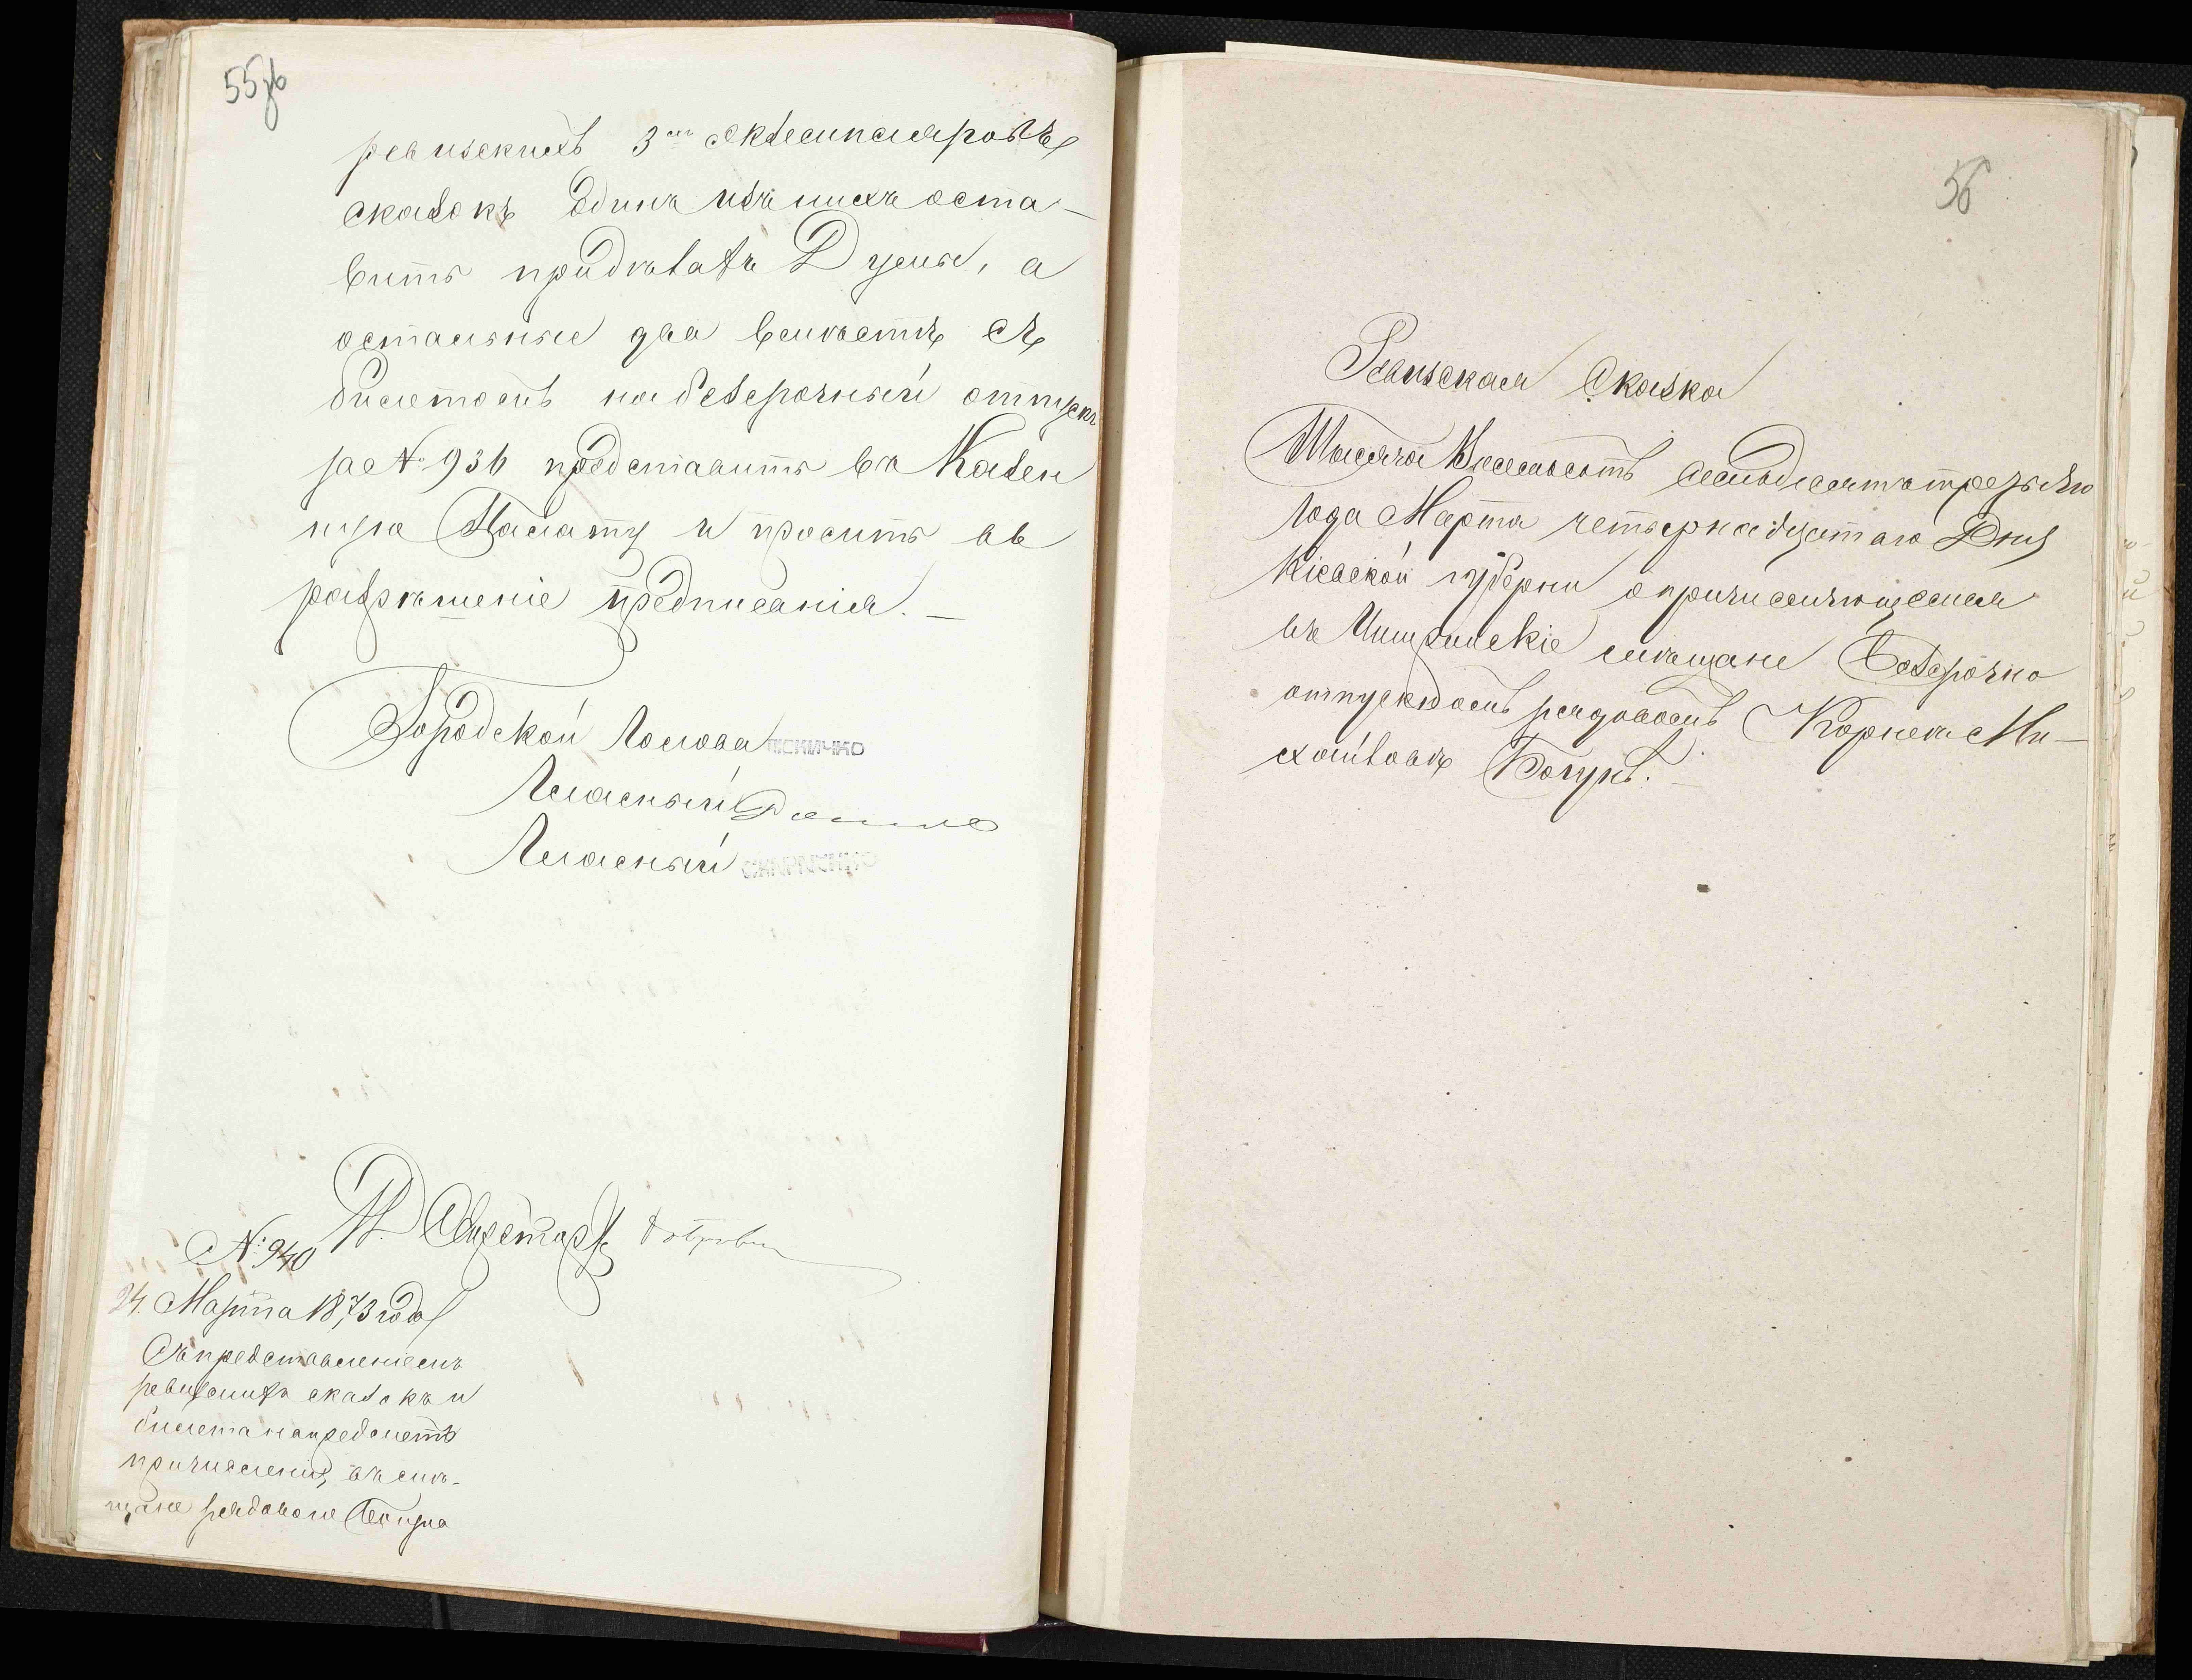 55об
ревизскихъ 3хъ экземпляровъ
сказокъ одинъ изъ нихъ оста-
вить придѣлахъ Думы, а
остальные два вмѣстѣ съ
билетомъ на безсрочный отпускъ
за № 936 представить въ Казен
ную Палату и просить въ
разрѣшеніе предписанія. —
Городской Голова ПСКИЧКО
Гласный
Гласный
И. Д. Секретаря
№ 940
24 Марта 1873 года
Съ представленіемъ
ревизскихъ сказокъ и
билета на предметъ
причисленія въ мѣ-
щане рядоваго Богуна
56
Ревизская Сказка
Тысяча Восемьсотъ семьдесятъ третьяго
года Марта четырнадцатаго Дня
Кіевской губерни о причисляющемся
въ Чигринскіе мѣщане Безсрочно
отпускномъ рядовомъ Корнеѣ Ми-
хайловѣ Богунѣ. —